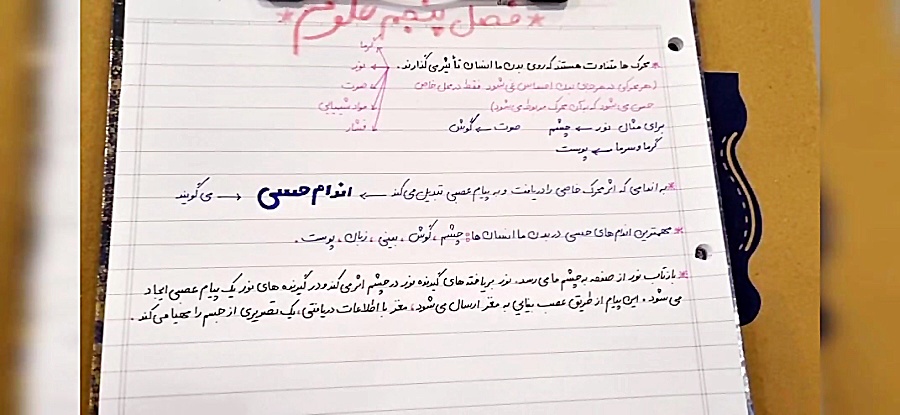 *فصل پنجم علوم*
* محرک ها متفاوت هستند که روی بدن ما انسان تأثیر می گذارند.
گرما
نور
صوت
مواد شیمیایی
فشار
(هر محرکی در همه جای بدن احساس نمی شود فقط در محل خاص
حس می شود که به آن محرک مربوط می شود)
برای مثال نور ← چشم صوت ← گوش
گرما و سرما ← پوست
* به اندامی که اثر محرک خاصی را دریافت و به پیام عصبی تبدیل می کند ← اندام حسی ← می گویند
* مهمترین اندام های حسی در بدن ما انسان ها: چشم، گوش، بینی، زبان، پوست.
* بازتاب نور از صفحه به چشم ما می رسد، نور بر یافته های گیرنده نور در چشم اثر می کند و در گیرنده های نور یک پیام عصبی ایجاد
می شود. این پیام از طریق عصب بینایی به مغز ارسال می شود، مغز با اطلاعات دریافتی، یک تصویری از جسم را مهیا می کند.